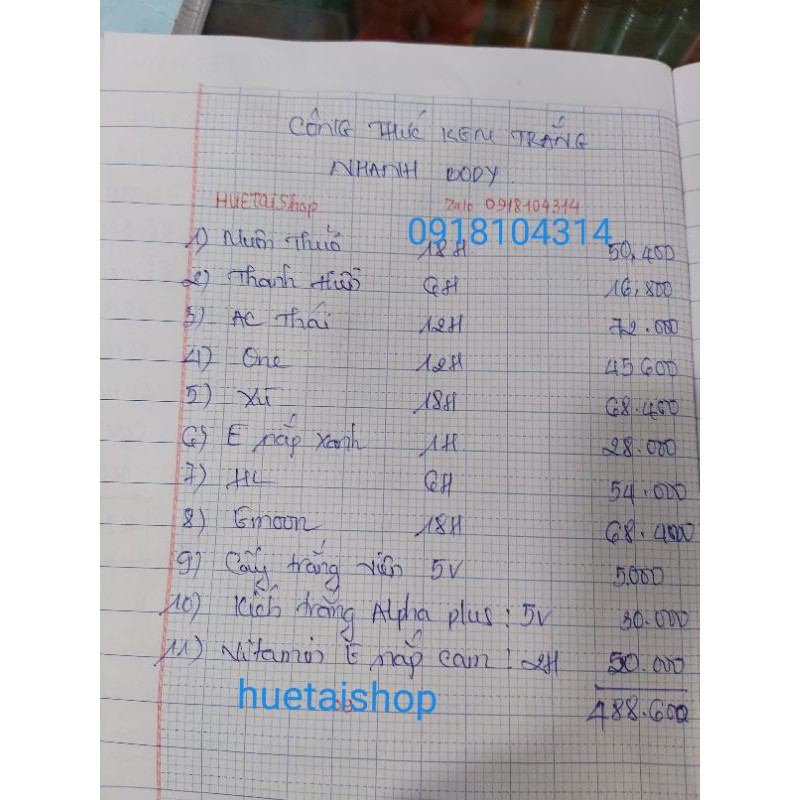 CÔNG THỨC KEM TRẮNG
NHANH BODY
HUETAIShop Zalo 0918104314
0918104314
1) Nuôi Thuố 18H 50.400
2) Thanh Hươ 6H 16.800
3) AC Thái 12H 72.000
4) One 12H 45600
5) Xù 18H 68.400
6) E nắp xanh 1H 28.000
7) HL 6H 54.000
8) Emoon 18H 68.400
9) Cấy trắng viên 5V 5.000
10) Kích trắng Alpha plus : 5V 30.000
11) Vitamin E nắp cam : 2H 50.000
huetaishop
488.600